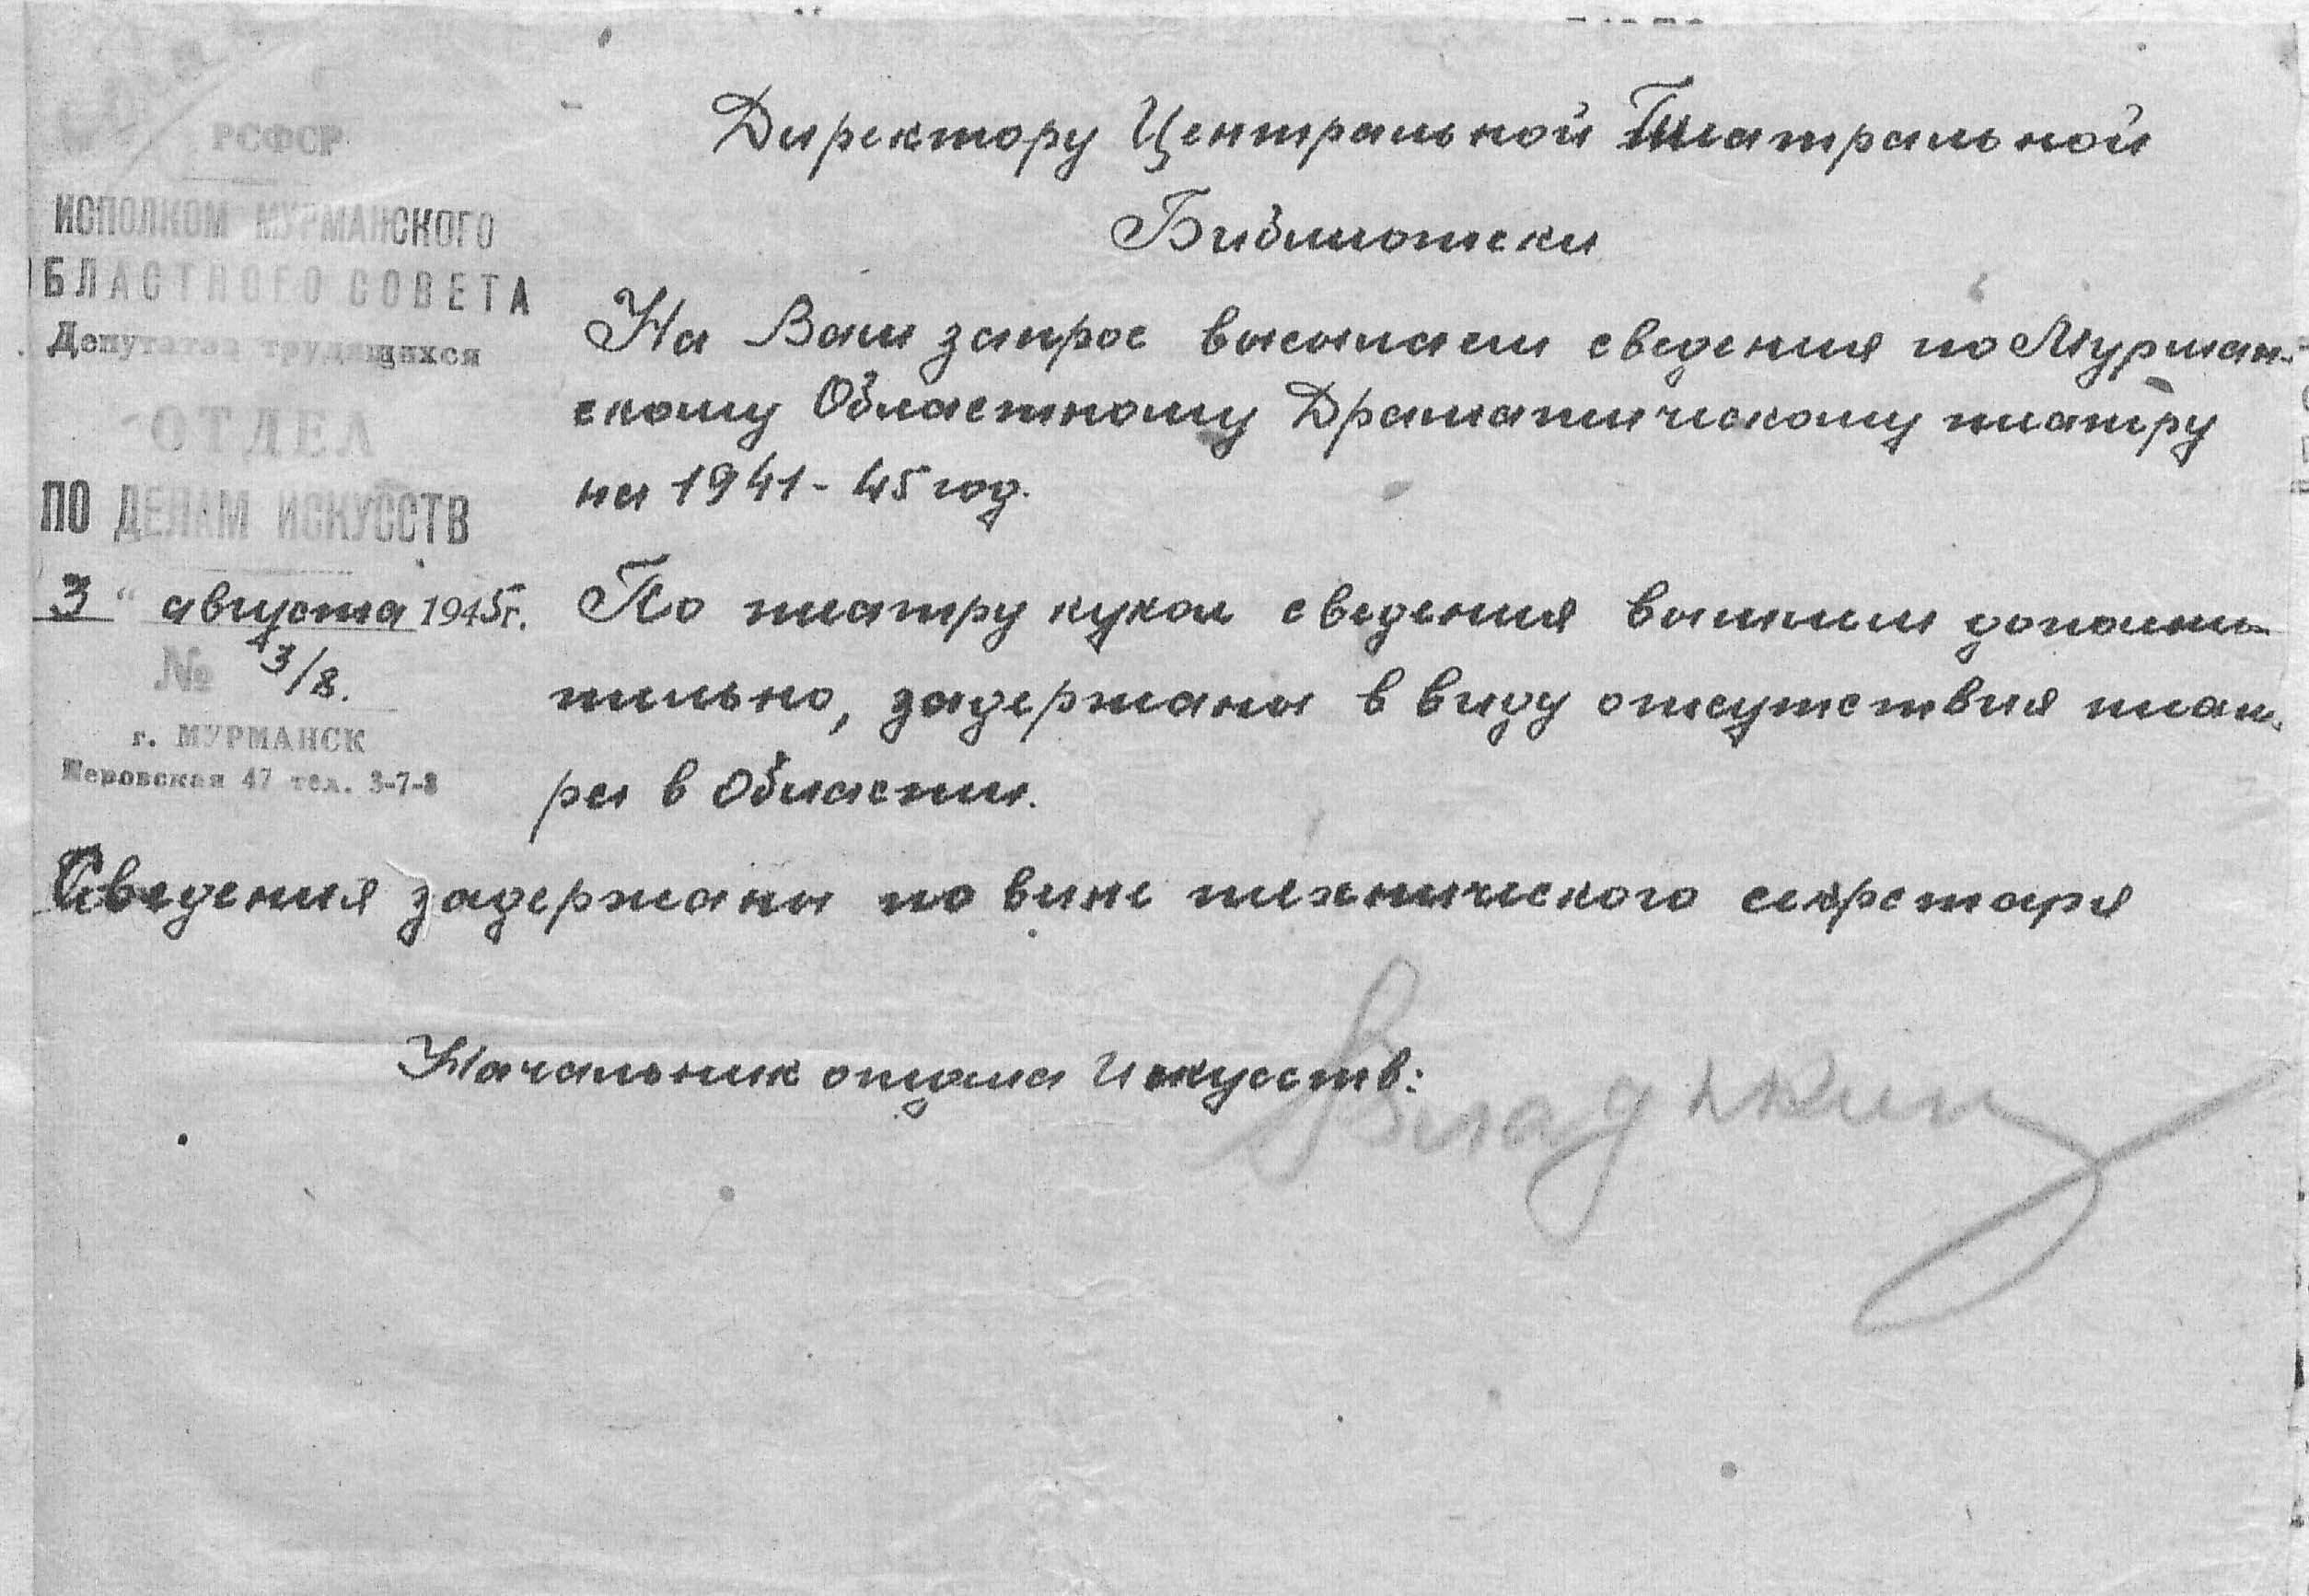 РСФСР
ИСПОЛКОМ МУРМАНСКОГО
ОБЛАСТНОГО СОВЕТА
Депутатов трудящихся
ОТДЕЛ
ПО ДЕЛАМ ИСКУССТВ
3 " августа 1945г.
№ 13/8.
г. МУРМАНСК
47 тел. 3-7-8
Директору Центральной Театральной
Библиотеки
На Ваш запрос высылаем сведения по Мурман-
скому Областному Драматическому театру
на 1941-45 год.
По театру кукол сведения вышлем дополни-
тельно, задержаны в виду отсутствия теат-
ра в Области.
Сведения задержаны по вине технического секретаря
Начальник отдела Искусств: